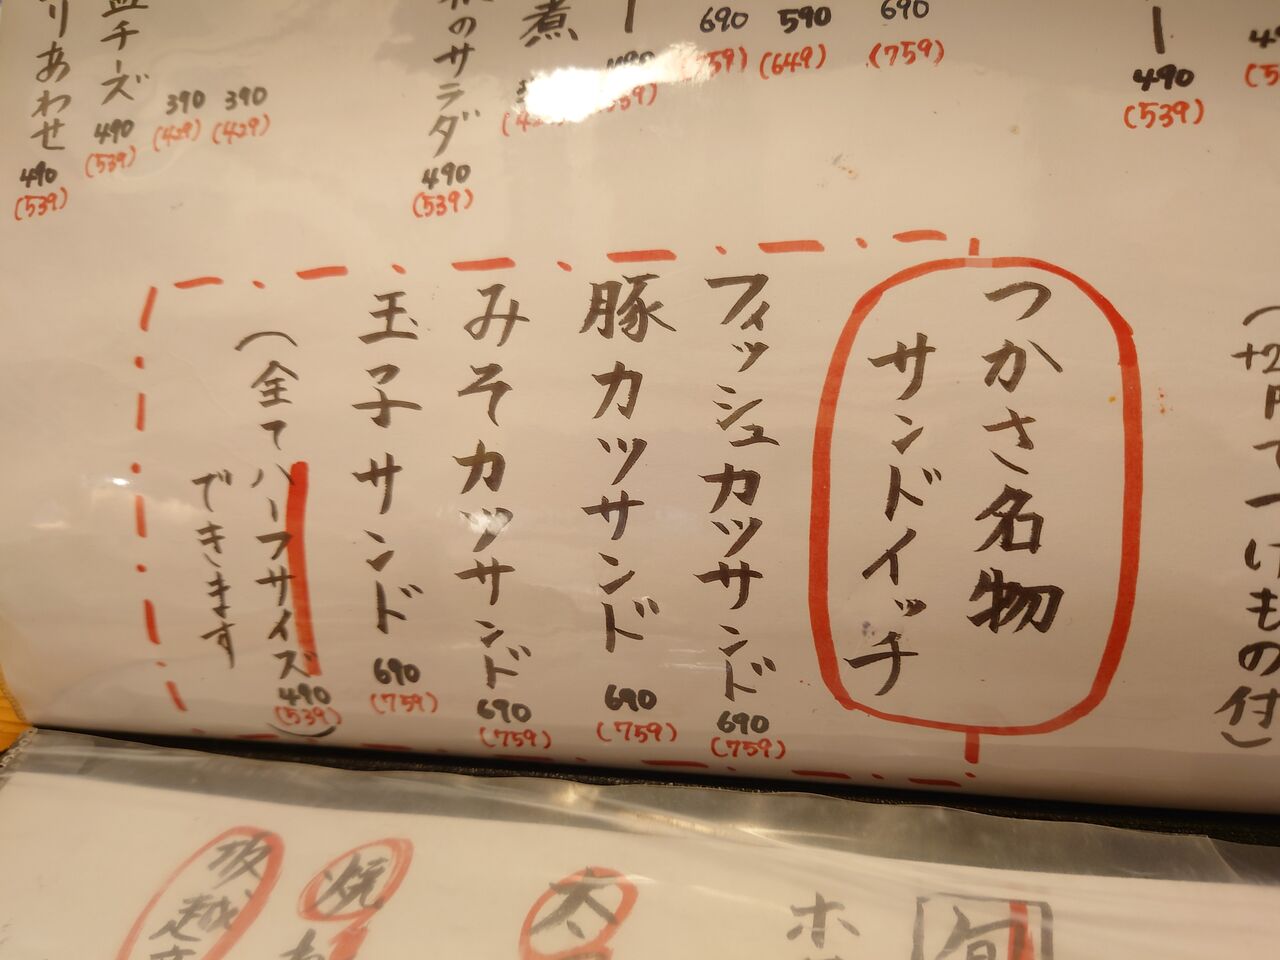 りあわせ
490
(539)
皿チーズ
490
(539)
390
(429)
390
(429)
のサラダ
490
(539)
煮
490
690
(759)
590
(649)
690
(759)
ー
490
(539)
つかさ名物
サンドイッチ
フィッシュカツサンド
690
(759)
豚カツサンド
690
(759)
みそカツサンド
690
(759)
玉子サンド
690
(759)
(全てハーフサイズ
できます
490
(539))
けもの付)
坂越
焼
太
ホ
旬